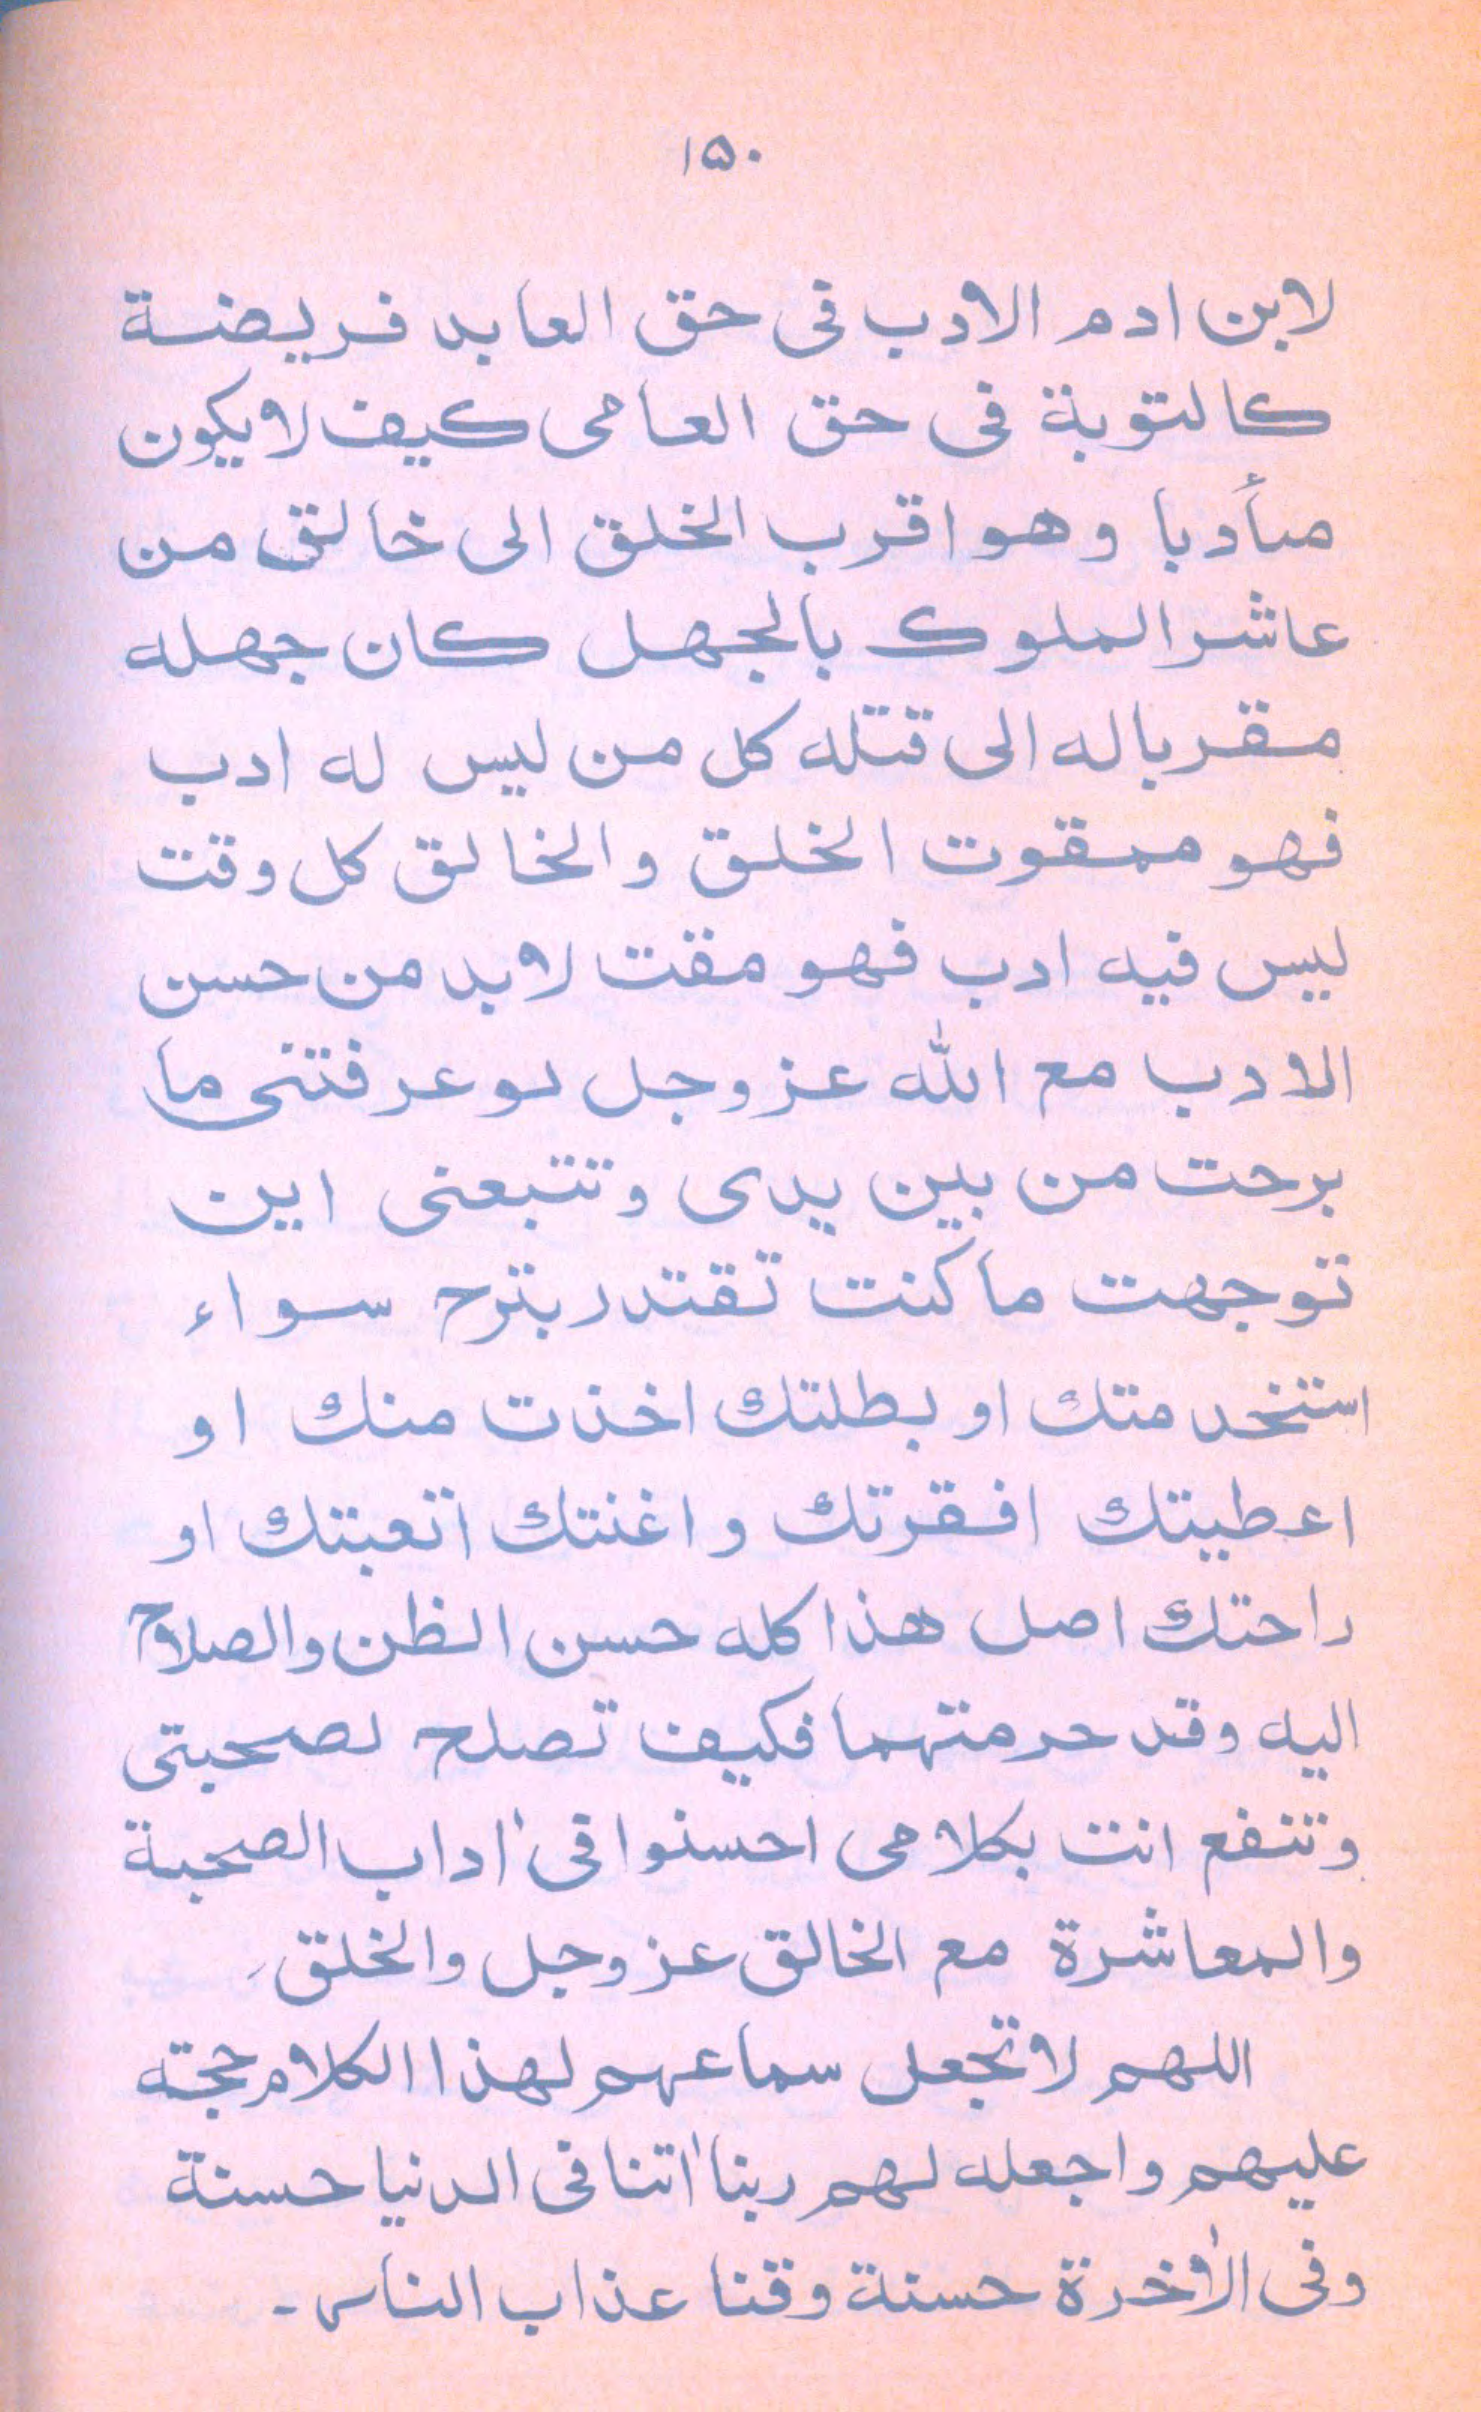 ۱۵۰
لابن ادم الادب فی حق العابد فریضة
کالتوبة فی حق العامی کیف لا یکون
متأدبا وهو اقرب الخلق الی خالق من
عاشر الملوک بالجهل کان جهله
مقربا له الی قتله کل من لیس له ادب
فهو ممقوت الخلق والخالق کل وقت
لیس فیه ادب فهو مقت لابد من حسن
الادب مع الله عز وجل لو عرفتنی ما
برحت من بین یدی وتتبعنی این
توجهت ما کنت تقتدر بترح سواء
استخدمتك او بطلتك اخذت منك او
اعطیتك افقرتك واغنتك اتعبتك او
راحتك اصل هذا کله حسن الظن والصلاح
الیه وقد حرمتهما فکیف تصلح لصحبتی
وتنفع انت بکلامی احسنوا فی اٰداب الصحبة
والمعاشرة مع الخالق عز وجل والخلق۔
اللهم لا تجعل سماعهم لهذا الکلام حجته
علیهم واجعله لهم ربنا اٰتنا فی الدنیا حسنة
وفی الاٰخرة حسنة وقنا عذاب الناس ۔